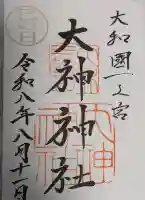 大和國一之宮
大神神社
令和八年八月十一日